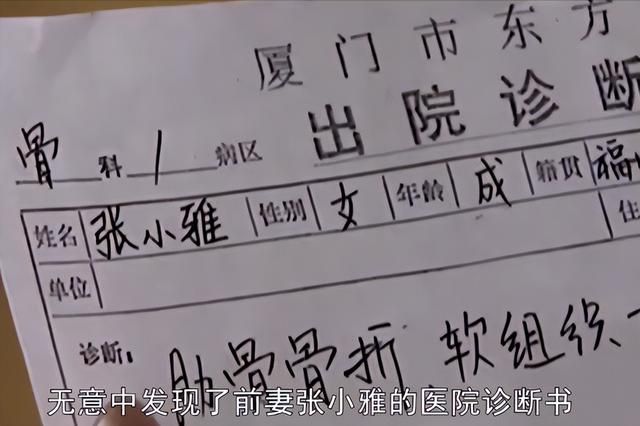 厦门市东方
出院诊断
骨科 1 病区
姓名 张小雅 性别 女 年龄 成 籍贯 福
单位 住
诊断: 肋骨骨折 软组织
无意中发现了前妻张小雅的医院诊断书